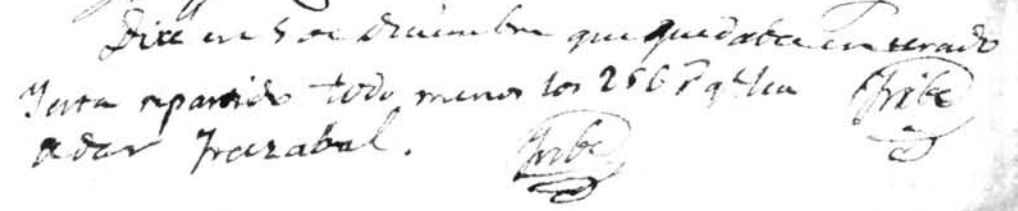 Dixe en 5 de diciembre que quedaba enterado
Y esta repartido todo menos los 256 p q.e ha
de dar Irazabal.